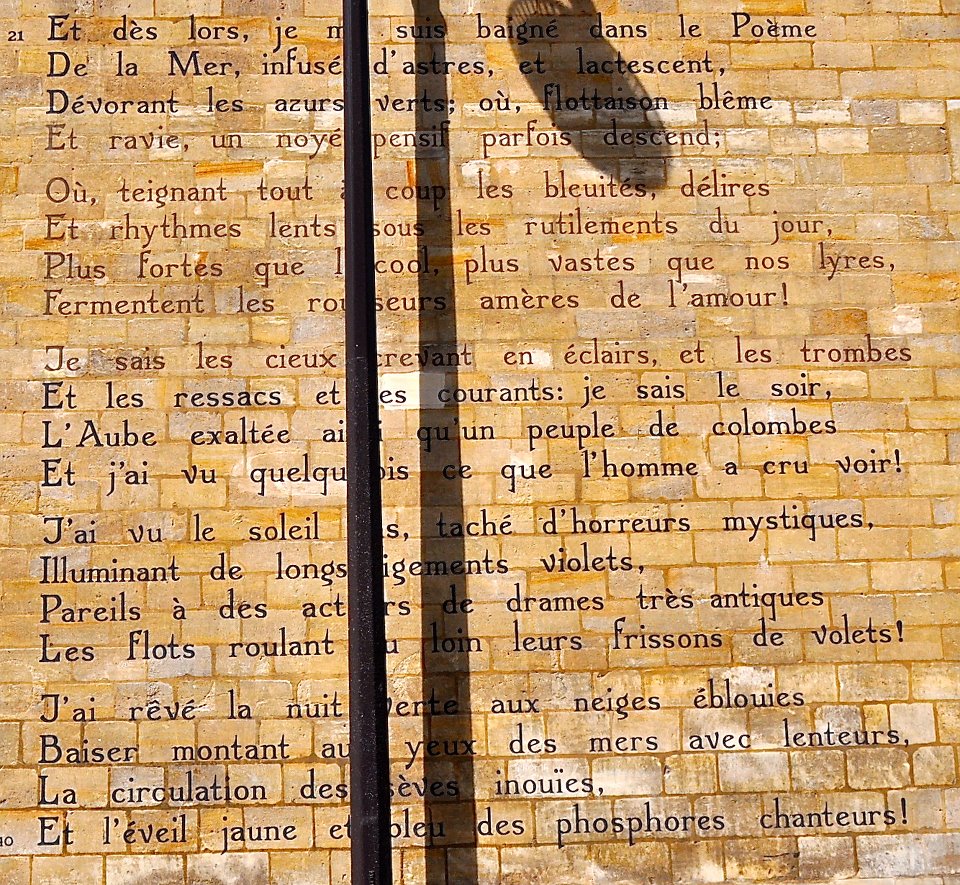 21 Et dès lors, je me suis baigné dans le Poème
De la Mer, infusé d'astres, et lactescent,
Dévorant les azurs verts; où, flottaison blême
Et ravie, un noyé pensif parfois descend;
Où, teignant tout à coup les bleuités, délires
Et rhythmes lents sous les rutilements du jour,
Plus fortes que l'alcool, plus vastes que nos lyres,
Fermentent les rousseurs amères de l'amour!
Je sais les cieux crevant en éclairs, et les trombes
Et les ressacs et les courants: je sais le soir,
L'Aube exaltée ainsi qu'un peuple de colombes
Et j'ai vu quelquefois ce que l'homme a cru voir!
J'ai vu le soleil bas, taché d'horreurs mystiques,
Illuminant de longs figements violets,
Pareils à des acteurs de drames très antiques
Les flots roulant au loin leurs frissons de volets!
J'ai rêvé la nuit verte aux neiges éblouies
Baiser montant aux yeux des mers avec lenteurs,
La circulation des sèves inouïes,
Et l'éveil jaune et bleu des phosphores chanteurs!